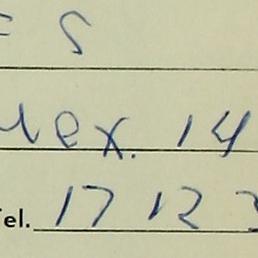 S
lex. 14
Tel. 17 12